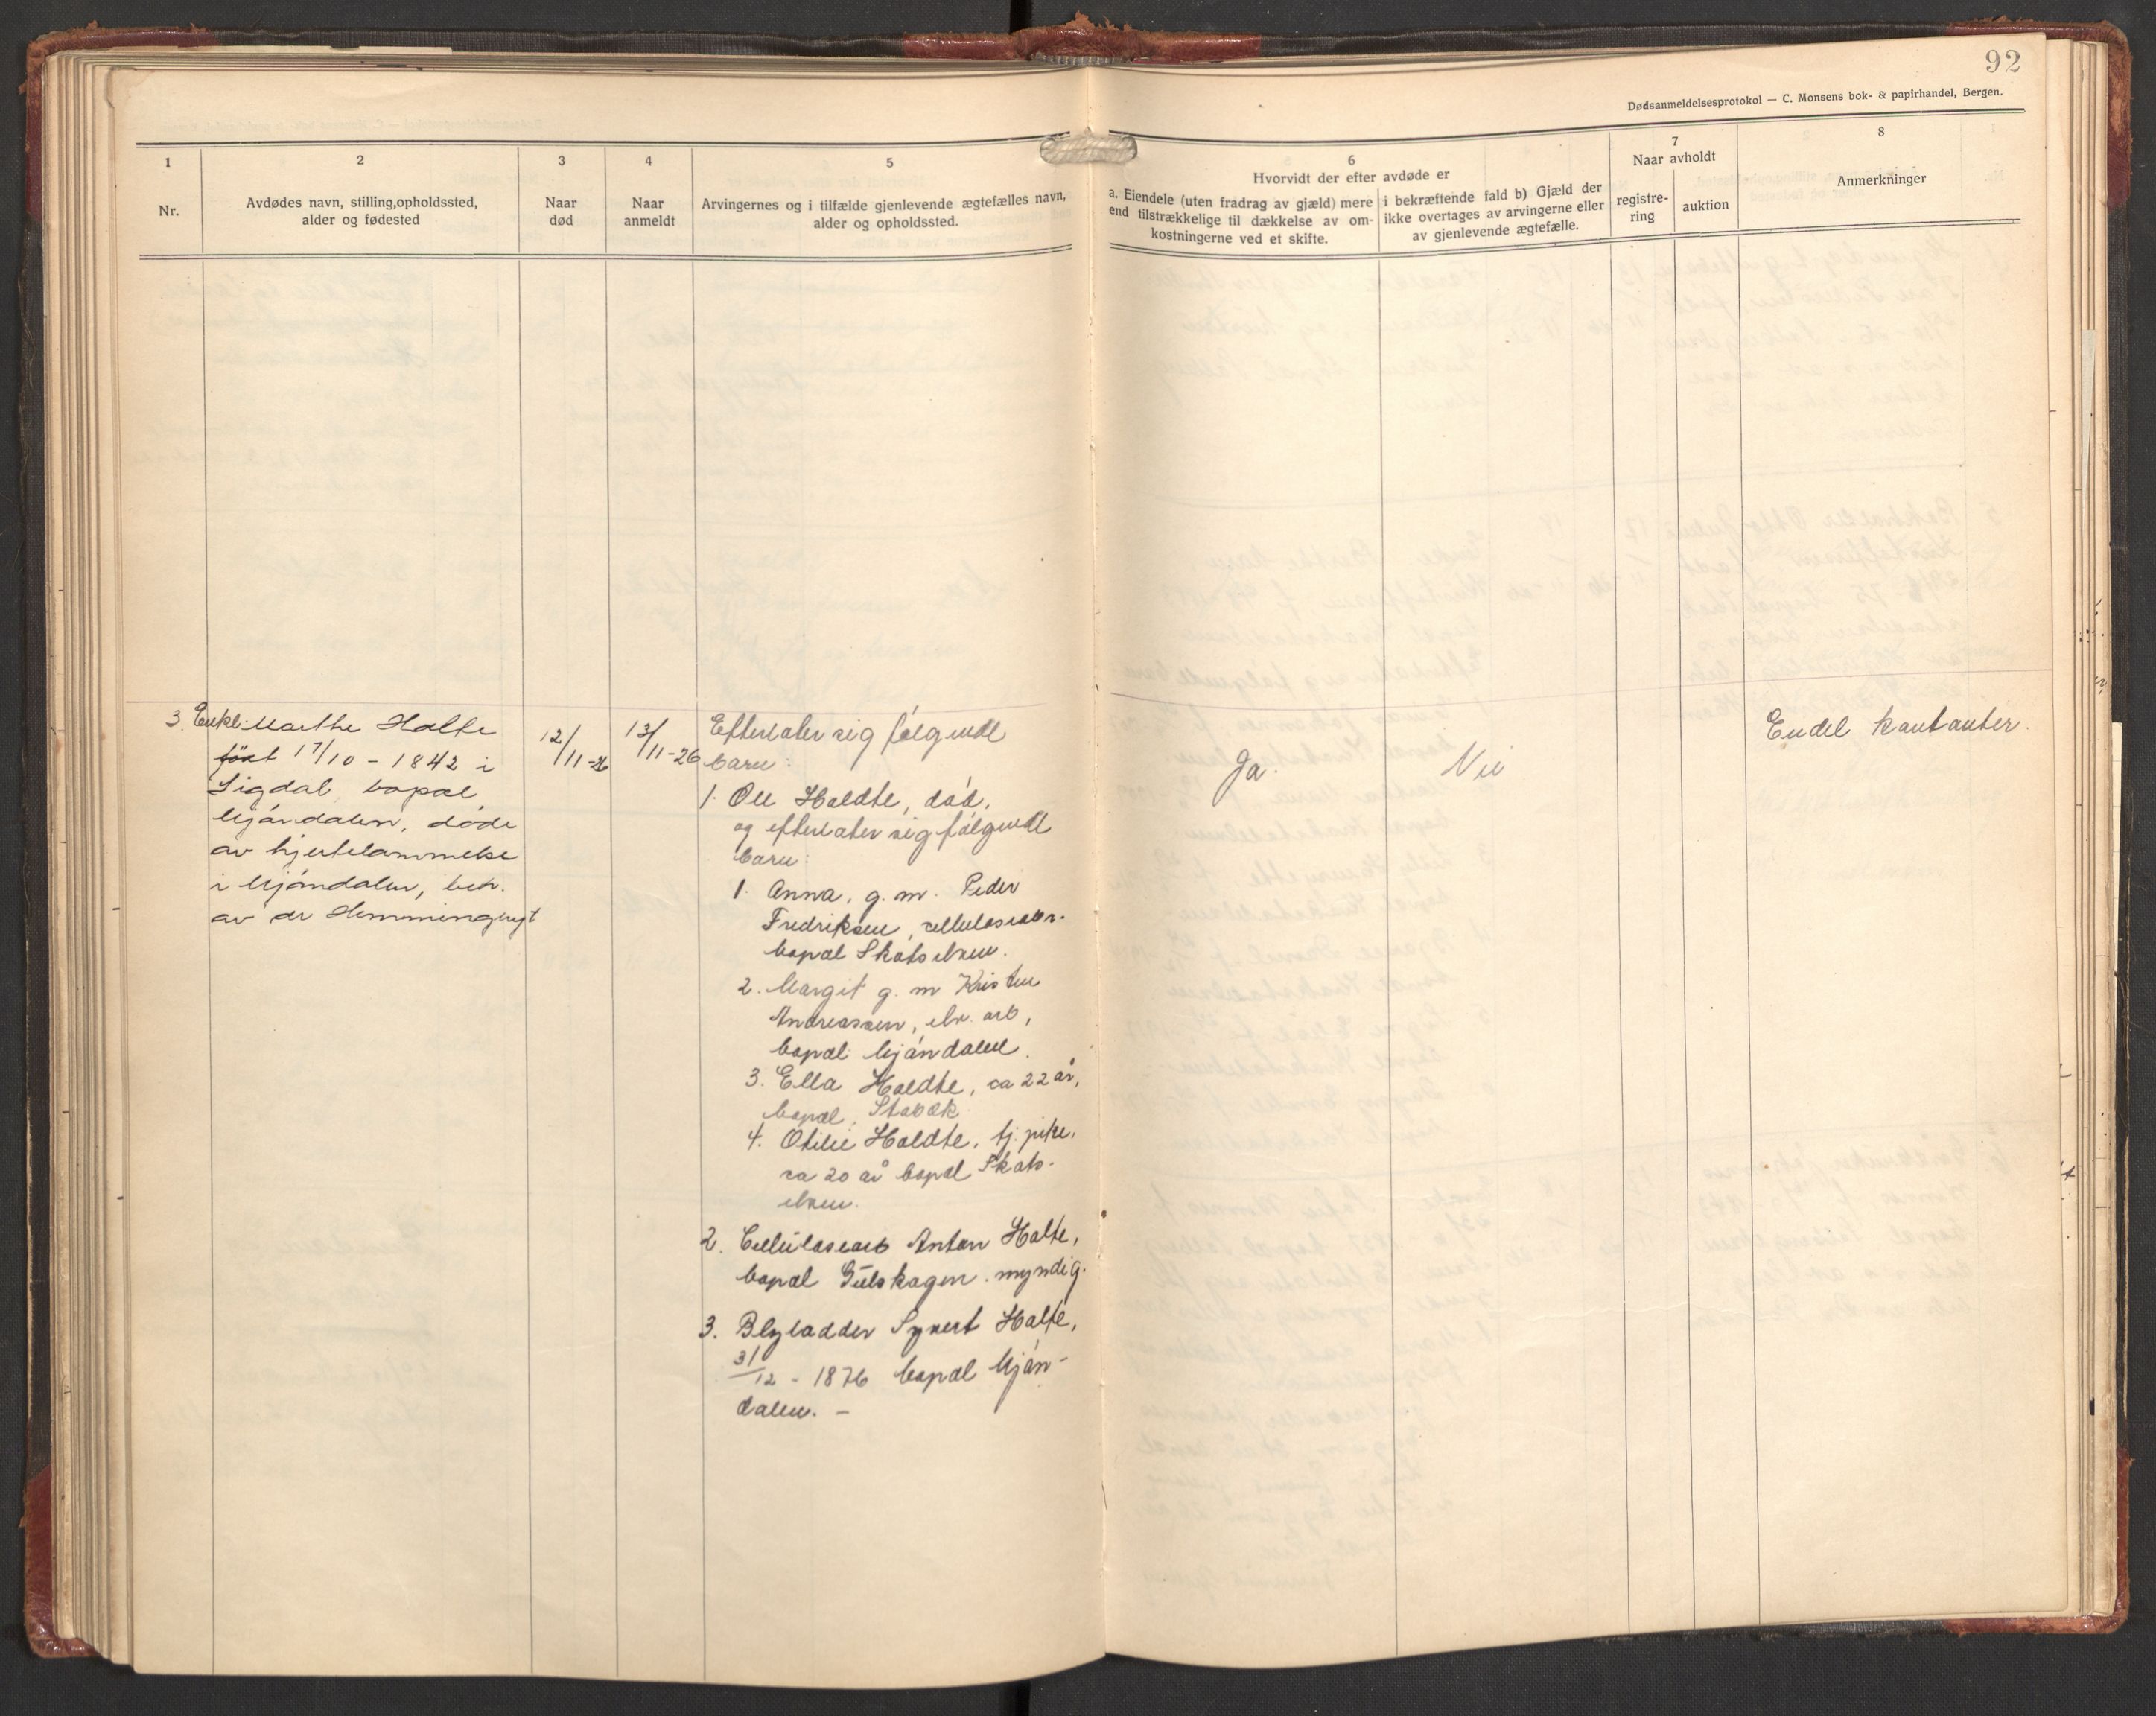 92
Dødsanmeldelsesprotokol — C. Monsens bok- & papirhandel, Bergen.
1
Nr.
2
Avdødes navn, stilling,opholdssted,
alder og fødested
3
Naar
død
4
Naar
anmeldt
5
Arvingernes og i tilfælde gjenlevende ægtefælles navn,
alder og opholdssted.
6
Hvorvidt der efter avdøde er
a. Eiendele (uten fradrag av gjæld) mere
end tilstrækkelige til dækkelse av om-
kostningerne ved et skifte.
i bekræftende fald b) Gjæld der
ikke overtages av arvingerne eller
av gjenlevende ægtefælle.
7
Naar avholdt
registre-
ring
auktion
8
Anmerkninger
3. Enke Marthe Holte
født 17/10 - 1842 i
Sigdal, bopæl
Mjøndalen, døde
av hjertelammelse
i Mjøndalen, beh.
av dr Hemmingbyt
12/11-26
13/11-26
Efterlater sig følgende
barn:
1. Ole Holdte, død,
og efterlater sig følgende
barn:
1. Anna, g. m. Peder
Fredriksen, cellulosearb.
bopæl Skotselven.
2. Margit g. m Kristen
Andreassen, elv. arb,
bopæl Mjøndalen.
3. Ella Holdte, ca 22 år,
bopæl, Stabæk
4. Otilie Holdte, tj. pike,
ca 20 år bopæl Skots-
elven.
2. Cellulosearb Anton Holte,
bopæl Gulskogen. myndig.
3. Syvert Holte,
31/12 - 1876 bopæl Mjøn-
dalen. -
Ja.
Nei
Endel kontanter.